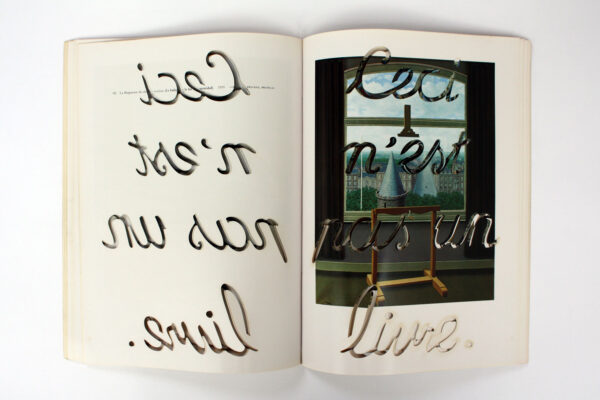 Ceci
n'est
pas un
livre.
Ceci
n'est
pas un
livre.